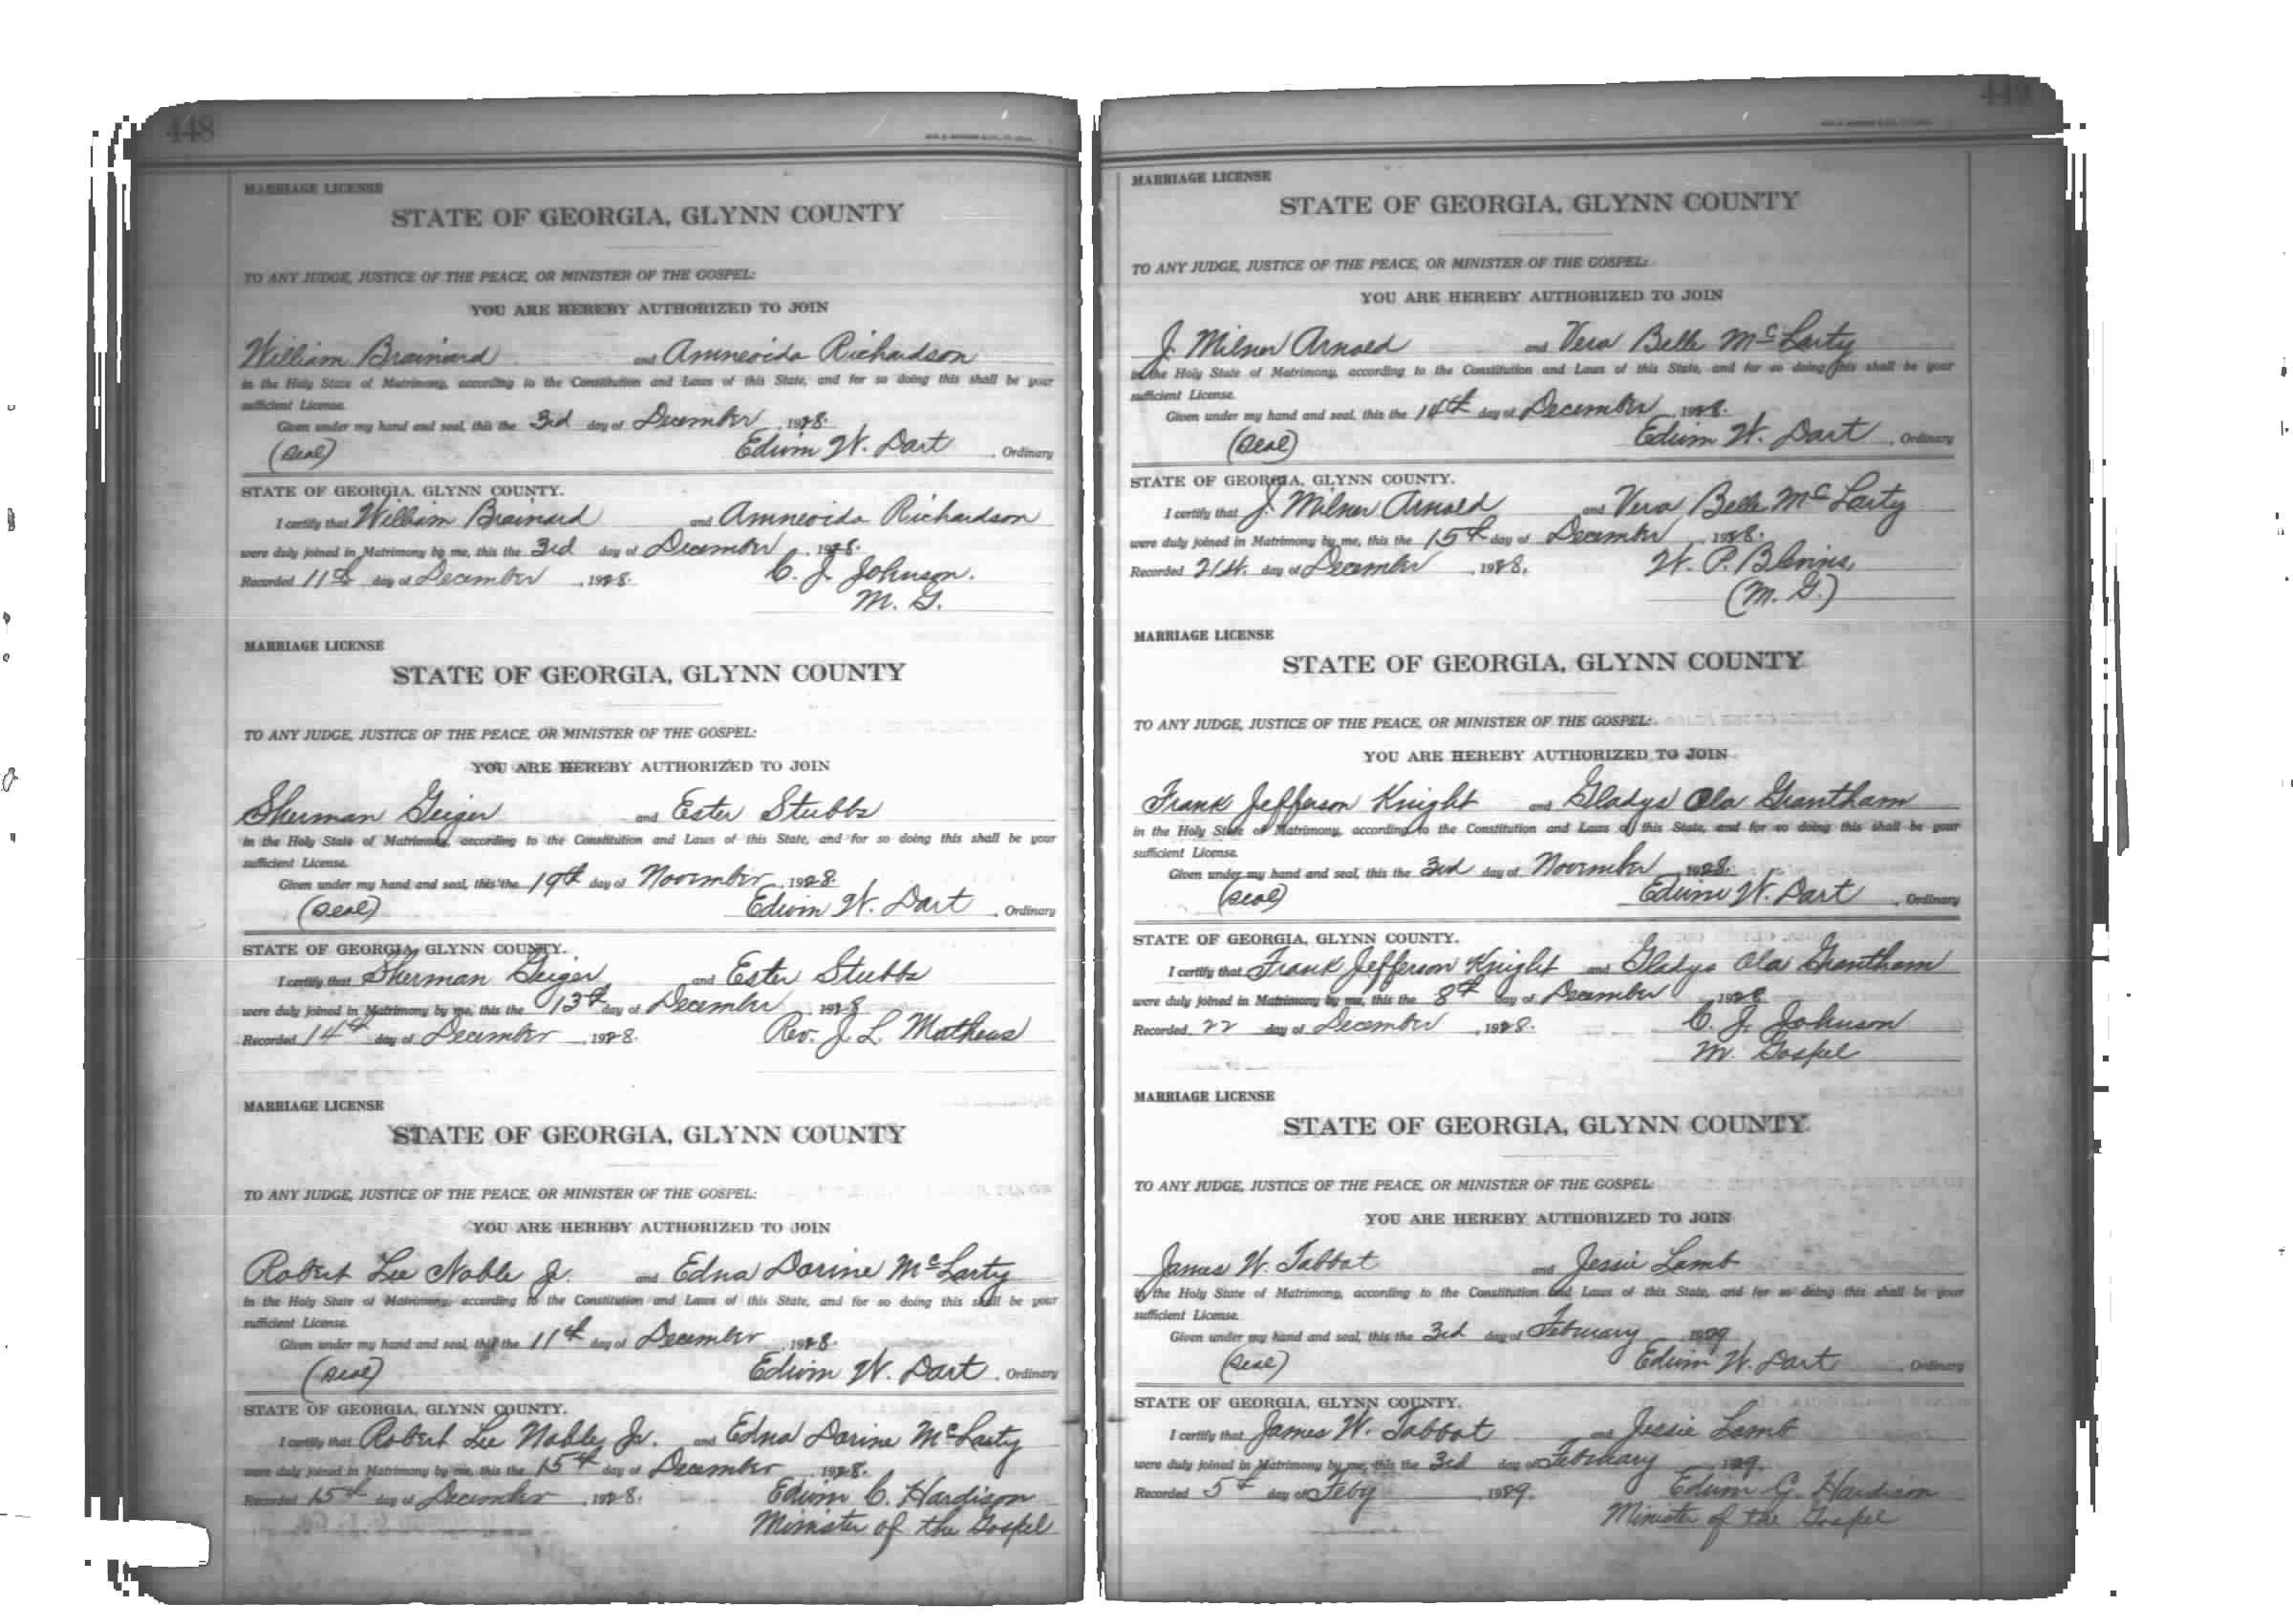 448
MARRIAGE LICENSE
STATE OF GEORGIA, GLYNN COUNTY
TO ANY JUDGE, JUSTICE OF THE PEACE, OR MINISTER OF THE GOSPEL:
YOU ARE HEREBY AUTHORIZED TO JOIN
William Brainard and Amneoida Richardson
in the Holy State of Matrimony, according to the Constitution and Laws of this State, and for so doing this shall be your
sufficient License.
Given under my hand and seal, this the 3rd day of December, 1928.
(Seal) Edwin W. Dart, Ordinary
STATE OF GEORGIA, GLYNN COUNTY.
I certify that William Brainard and Amneoida Richardson
were duly joined in Matrimony by me, this the 3rd day of December, 1928.
Recorded 11th day of December, 1928. C. J. Johnson.
M. G.
MARRIAGE LICENSE
STATE OF GEORGIA, GLYNN COUNTY
TO ANY JUDGE, JUSTICE OF THE PEACE, OR MINISTER OF THE GOSPEL:
YOU ARE HEREBY AUTHORIZED TO JOIN
Sherman Geiger and Ester Stubbs
in the Holy State of Matrimony, according to the Constitution and Laws of this State, and for so doing this shall be your
sufficient License.
Given under my hand and seal, this the 19th day of November, 1928.
(Seal) Edwin W. Dart, Ordinary
STATE OF GEORGIA, GLYNN COUNTY.
I certify that Sherman Geiger and Ester Stubbs
were duly joined in Matrimony by me, this the 13th day of December, 1928
Recorded 14th day of December, 1928. Rev. J. L. Mathews
MARRIAGE LICENSE
STATE OF GEORGIA, GLYNN COUNTY
TO ANY JUDGE, JUSTICE OF THE PEACE, OR MINISTER OF THE GOSPEL:
YOU ARE HEREBY AUTHORIZED TO JOIN
Robert Lee Noble Jr. and Edna Dorine McLarty
in the Holy State of Matrimony, according to the Constitution and Laws of this State, and for so doing this shall be your
sufficient License.
Given under my hand and seal, this the 11th day of December, 1928.
(Seal) Edwin W. Dart, Ordinary
STATE OF GEORGIA, GLYNN COUNTY.
I certify that Robert Lee Noble, Jr. and Edna Dorine McLarty
were duly joined in Matrimony by me, this the 15th day of December, 1928.
Recorded 15th day of December, 1928. Edwin C. Hardison
Minister of the Gospel
449
MARRIAGE LICENSE
STATE OF GEORGIA, GLYNN COUNTY
TO ANY JUDGE, JUSTICE OF THE PEACE, OR MINISTER OF THE GOSPEL:
YOU ARE HEREBY AUTHORIZED TO JOIN
J. Milner Arnold and Vera Belle McLarty
in the Holy State of Matrimony, according to the Constitution and Laws of this State, and for so doing this shall be your
sufficient License.
Given under my hand and seal, this the 14th day of December, 1928.
(Seal) Edwin W. Dart, Ordinary
STATE OF GEORGIA, GLYNN COUNTY.
I certify that J. Milner Arnold and Vera Belle McLarty
were duly joined in Matrimony by me, this the 15th day of December, 1928.
Recorded 21st. day of December, 1928. W. P. Blevins,
(M. G.)
MARRIAGE LICENSE
STATE OF GEORGIA, GLYNN COUNTY
TO ANY JUDGE, JUSTICE OF THE PEACE, OR MINISTER OF THE GOSPEL:
YOU ARE HEREBY AUTHORIZED TO JOIN
Frank Jefferson Knight and Gladys Ola Grantham
in the Holy State of Matrimony, according to the Constitution and Laws of this State, and for so doing this shall be your
sufficient License.
Given under my hand and seal, this the 3rd day of November, 1928.
(Seal) Edwin W. Dart, Ordinary
STATE OF GEORGIA, GLYNN COUNTY.
I certify that Frank Jefferson Knight and Gladys Ola Grantham
were duly joined in Matrimony by me, this the 8th day of December, 1928
Recorded 22 day of December, 1928. C. J. Johnson
M. Gospel
MARRIAGE LICENSE
STATE OF GEORGIA, GLYNN COUNTY
TO ANY JUDGE, JUSTICE OF THE PEACE, OR MINISTER OF THE GOSPEL:
YOU ARE HEREBY AUTHORIZED TO JOIN
James W. Tabbot and Jessie Lamb
in the Holy State of Matrimony, according to the Constitution and Laws of this State, and for so doing this shall be your
sufficient License.
Given under my hand and seal, this the 3rd day of February, 1929
(Seal) Edwin W. Dart, Ordinary
STATE OF GEORGIA, GLYNN COUNTY.
I certify that James W. Tabbot and Jessie Lamb
were duly joined in Matrimony by me, this the 3rd day of February, 1929.
Recorded 5th day of Feby, 1929. Edwin C. Hardison
Minister of the Gospel